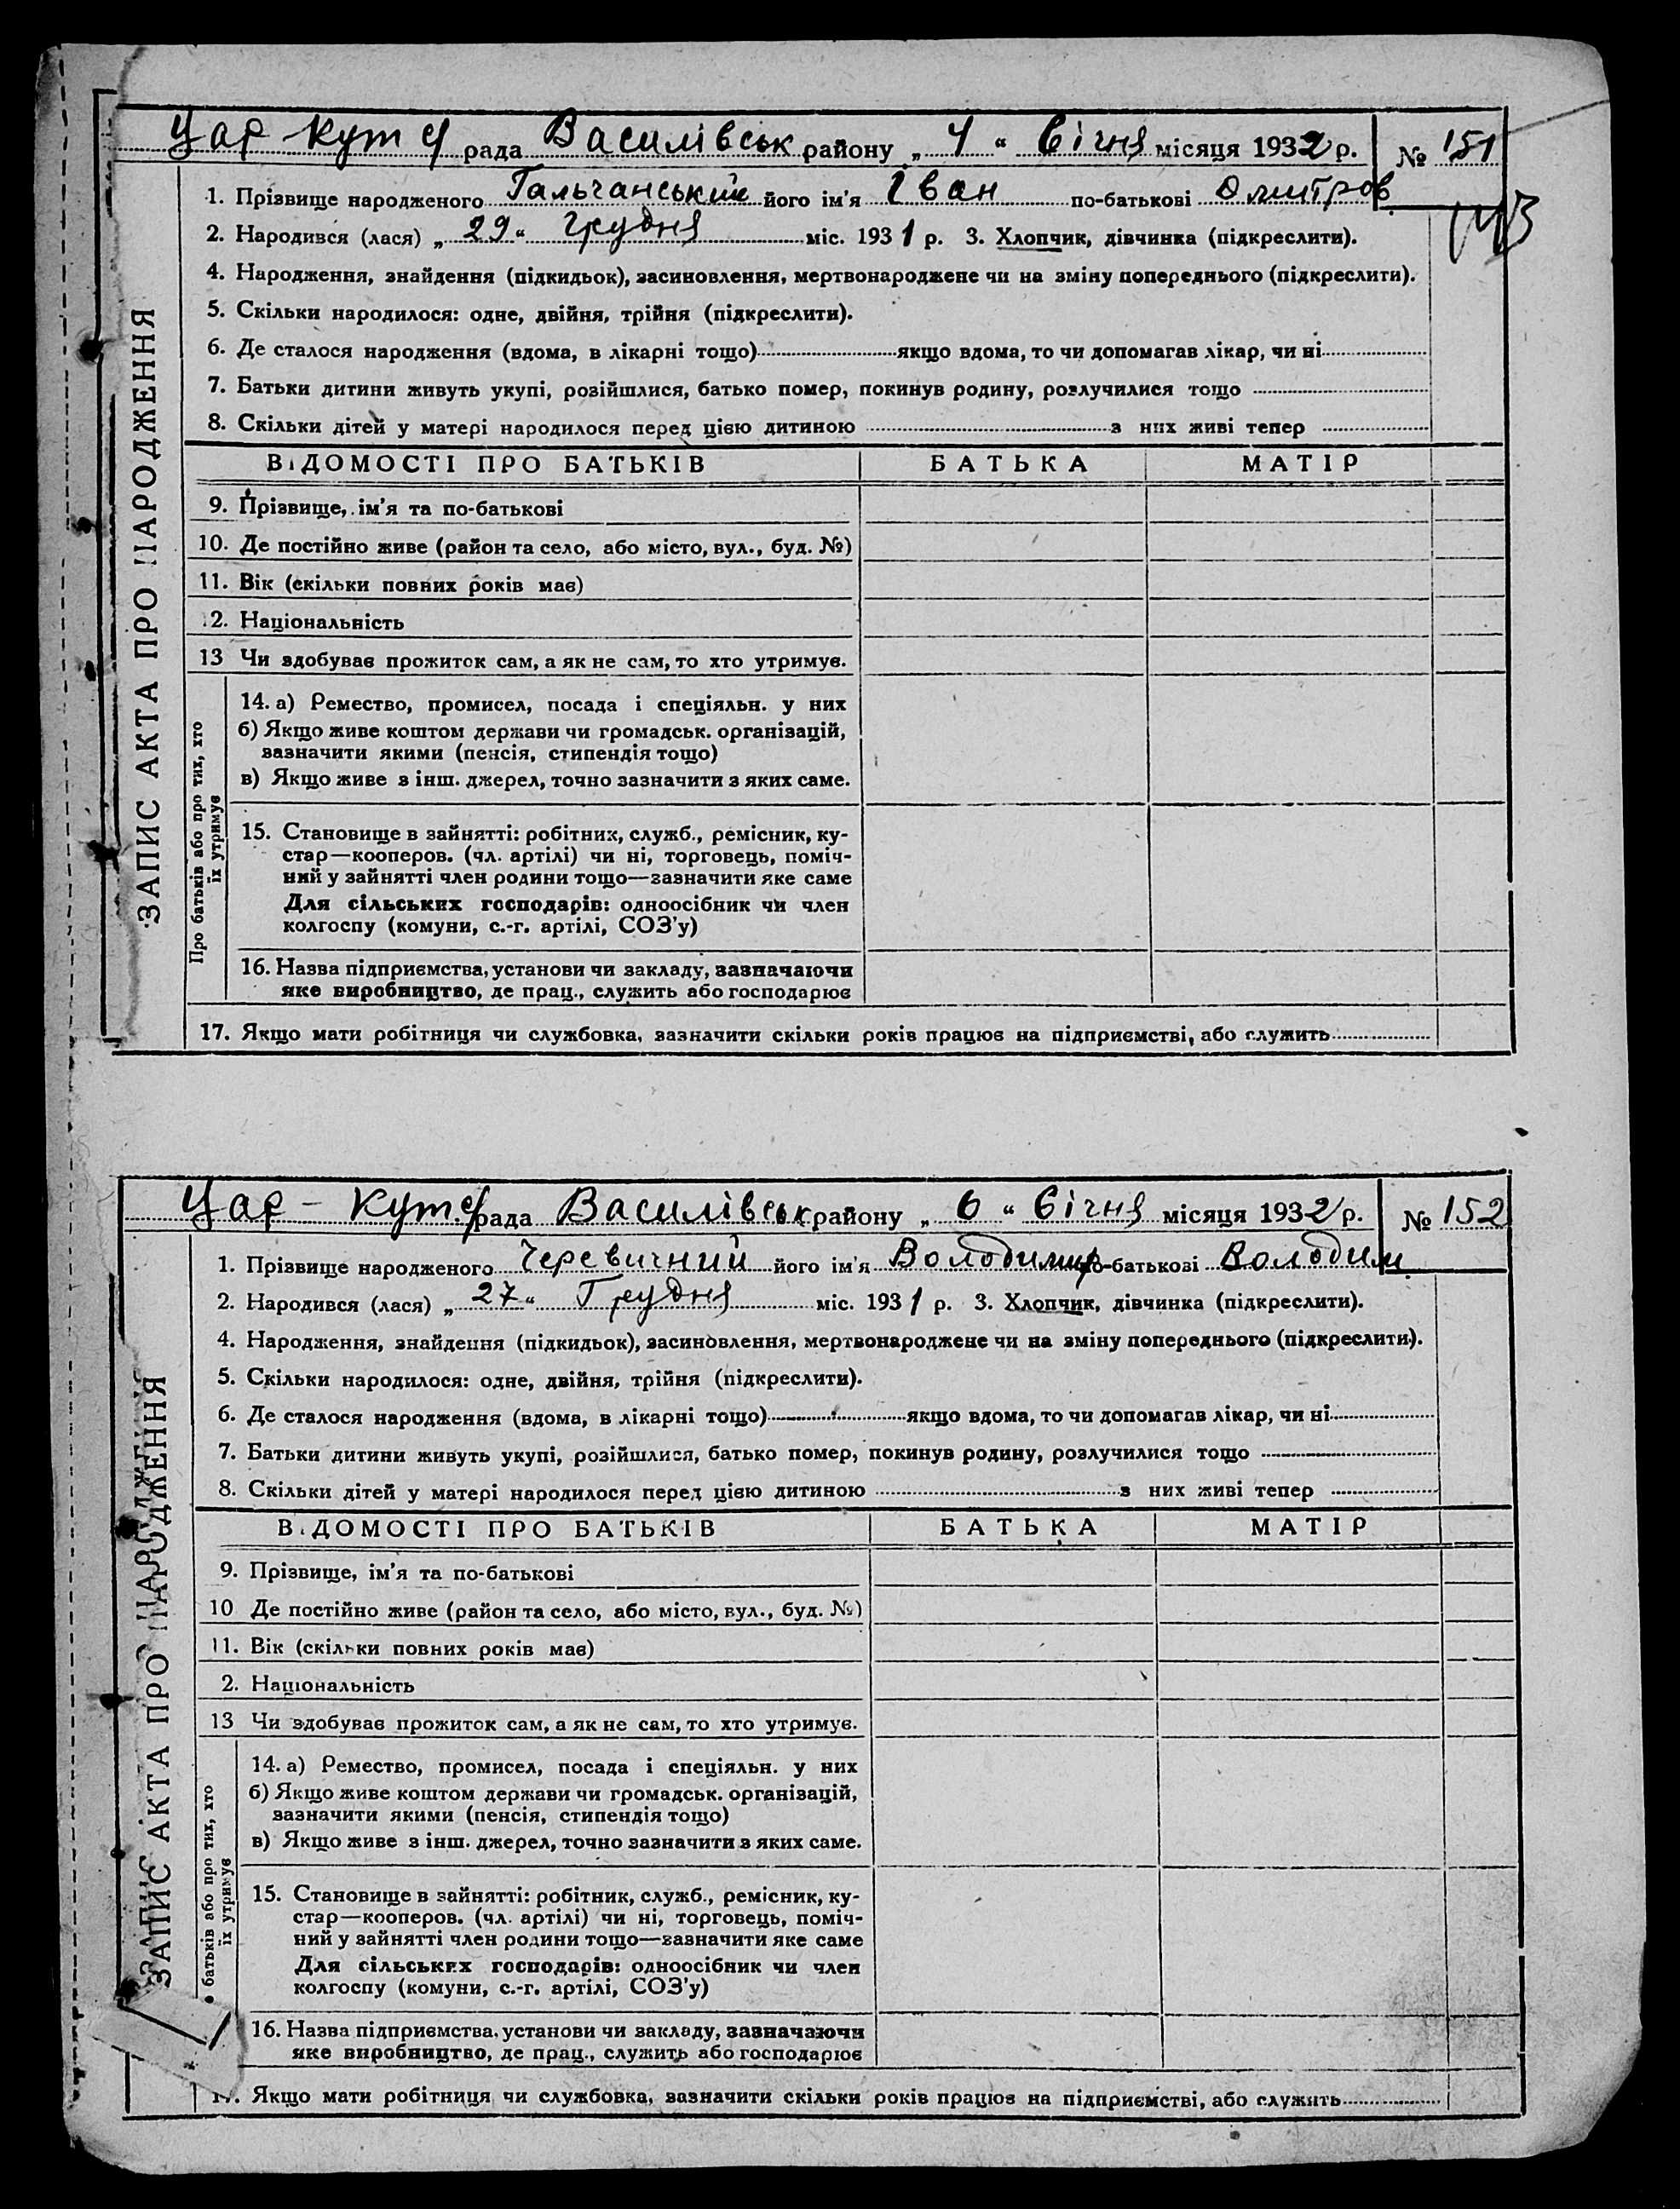 Цар-Кут рада Василівськ району „ 4 “ Січня місяця 1932 р. № 151
1. Прізвище народженого Гальчанський його ім'я Іван по-батькові Дмитров
2. Народився (лася) „ 29 “ Грудня міс. 1931 р. 3. Хлопчик, дівчинка (підкреслити).
4. Народження, знайдення (підкидьок), засиновлення, мертвонароджене чи на зміну попереднього (підкреслити).
5. Скільки народилося: одне, двійня, трійня (підкреслити).
6. Де сталося народження (вдома, в лікарні тощо) якщо вдома, то чи допомагав лікар, чи ні
7. Батьки дитини живуть укупі, розійшлися, батько помер, покинув родину, розлучилися тощо
8. Скільки дітей у матері народилося перед цією дитиною з них живі тепер
ВІДОМОСТІ ПРО БАТЬКІВ БАТЬКА МАТІР
9. Прізвище, ім'я та по-батькові
10. Де постійно живе (район та село, або місто, вул., буд. №)
11. Вік (скільки повних років має)
12. Національність
13 Чи здобуває прожиток сам, а як не сам, то хто утримує.
14. а) Ремество, промисел, посада і спеціяльн. у них
б) Якщо живе коштом держави чи громадськ. організацій,
зазначити якими (пенсія, стипендія тощо)
в) Якщо живе з інш. джерел, точно зазначити з яких саме.
15. Становище в зайнятті: робітник, служб., ремісник, ку-
стар—кооперов. (чл. артілі) чи ні, торговець, поміч-
ний у зайнятті член родини тощо—зазначити яке саме
Для сільських господарів: одноосібник чи член
колгоспу (комуни, с.-г. артілі, СОЗ'у)
16. Назва підприємства, установи чи закладу, зазначаючи
яке виробництво, де прац., служить або господарює
17. Якщо мати робітниця чи службовка, зазначити скільки років працює на підприємстві, або служить
ЗАПИС АКТА ПРО НАРОДЖЕННЯ
Про батьків або про тих, хто
їх утримує
Цар-Кут рада Василівськ району „ 6 “ Січня місяця 1932 р. № 152
1. Прізвище народженого Черевичний його ім'я Володимир по-батькові Володим
2. Народився (лася) „ 27 “ Грудня міс. 1931 р. 3. Хлопчик, дівчинка (підкреслити).
4. Народження, знайдення (підкидьок), засиновлення, мертвонароджене чи на зміну попереднього (підкреслити).
5. Скільки народилося: одне, двійня, трійня (підкреслити).
6. Де сталося народження (вдома, в лікарні тощо) якщо вдома, то чи допомагав лікар, чи ні
7. Батьки дитини живуть укупі, розійшлися, батько помер, покинув родину, розлучилися тощо
8. Скільки дітей у матері народилося перед цією дитиною з них живі тепер
ВІДОМОСТІ ПРО БАТЬКІВ БАТЬКА МАТІР
9. Прізвище, ім'я та по-батькові
10 Де постійно живе (район та село, або місто, вул., буд. №)
11. Вік (скільки повних років має)
2. Національність
13 Чи здобуває прожиток сам, а як не сам, то хто утримує.
14. а) Ремество, промисел, посада і спеціяльн. у них
б) Якщо живе коштом держави чи громадськ. організацій,
зазначити якими (пенсія, стипендія тощо)
в) Якщо живе з інш. джерел, точно зазначити з яких саме.
15. Становище в зайнятті: робітник, служб., ремісник, ку-
стар—кооперов. (чл. артілі) чи ні, торговець, поміч-
ний у зайнятті член родини тощо—зазначити яке саме
Для сільських господарів: одноосібник чи член
колгоспу (комуни, с.-г. артілі, СОЗ'у)
16. Назва підприємства, установи чи закладу, зазначаючи
яке виробництво, де прац., служить або господарює
17. Якщо мати робітниця чи службовка, зазначити скільки років працює на підприємстві, або служить
ЗАПИС АКТА ПРО НАРОДЖЕННЯ
батьків або про тих, хто
їх утримує